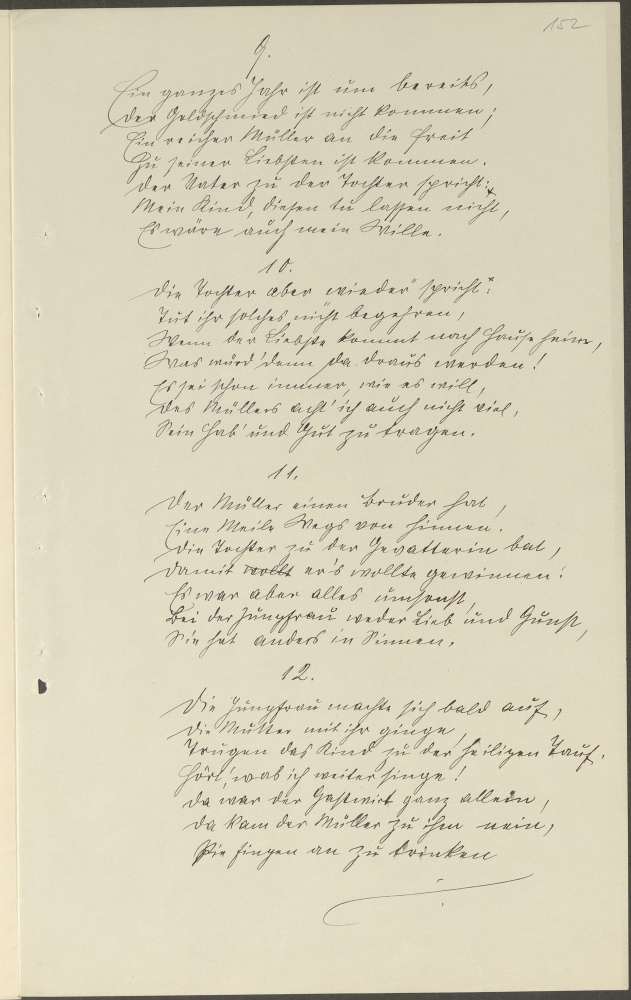 152
9.
Ein ganzes Jahr ist um bereits,
Der Goldschmied ist nicht kommen;
Ein reicher Müller an die Freit
Zu seiner Liebsten ist kommen.
Der Vater zu der Tochter spricht:
Mein Kind, diesen tu lassen nicht,
Es wäre auch mein Wille.
10.
Die Tochter aber wieder spricht:
Tut ihr solches nicht begehren,
Wenn der Liebste kommt nach Hause heim,
Was würd' denn da draus werden!
Es sei schon immer, wie es will,
Des Müllers acht' ich auch nicht viel,
Sein Hab' und Gut zu tragen.
11.
Der Müller einen Bruder hat,
Eine Meile Wegs von hinnen.
Die Tochter zu der Gevatterin bat,
Damit wollt er's wollte gewinnen:
Es war aber alles umsonst,
Bei der Jungfrau weder Lieb' und Gunst,
Sie hat anders in Sinnen.
12.
Die Jungfrau machte sich bald auf,
Die Mutter mit ihr ginge,
Trugen das Kind zu der heiligen Tauf.
Hört, was ich weiter singe!
Da war der Gastwirt ganz allein,
Da kam der Müller zu ihm nein,
Sie fingen an zu trinken